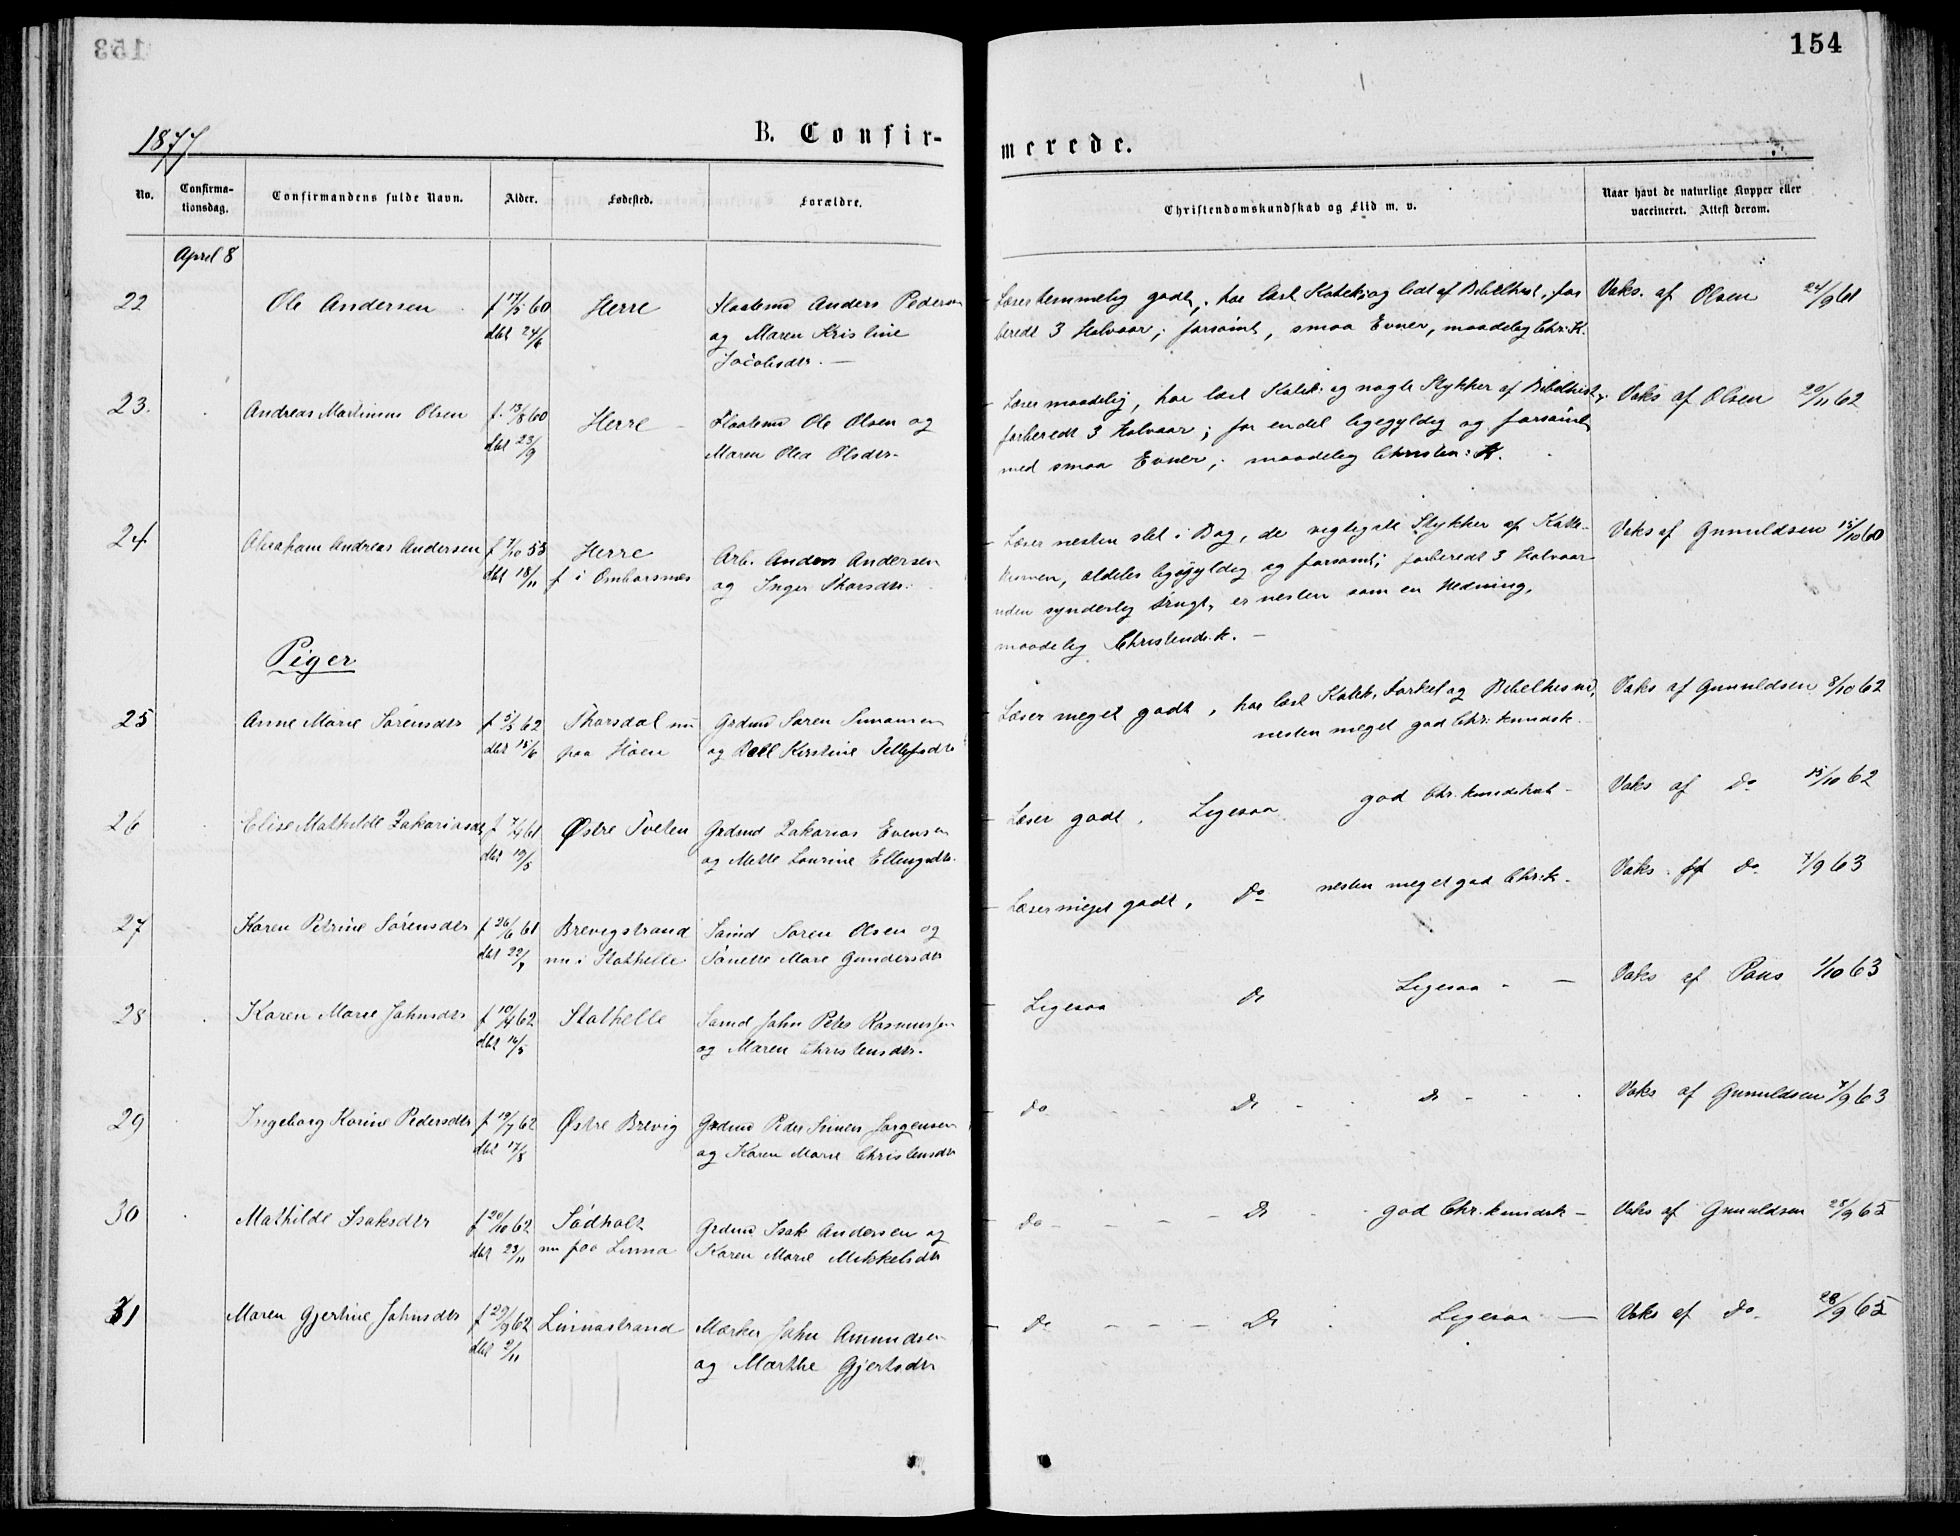 154
1877
B. Confir-
merede.
No.
Confirma-
tionsdag.
Confirmandens fulde Navn.
Alder.
Fødested.
Forældre.
Christendomskundskab og Flid m. v.
Naar havt de naturlige Kopper eller
vaccineret. Attest derom.
April 8
22 Ole Andersen f 17/5 60 Herre Anders Pedersen
dbt 24/6 og Maren Kristine
Jacobsdtr. —
Læser temmelig godt, har læst Katek. og lidt af Bibelhist, for
beredt 3 Halvaar; forsømt, smaa Evner, maadelig Chr. K.
Vaks. af Olsen 24/9 61
23. Andreas Martinius Olsen f. 13/8 60 Herre Ole Olsen og
dbt 23/9 Maren Olea Olsdtr.
Læser maadelig, har læst Katek. og nogle Stykker af Bibelhist.,
forberedt 3 Halvaar; for endel ligegyldig og forsømt
med smaa Evner; maadelig Christen: K.
Vaks af Olsen 20/11 62
24 Abraham Andreas Andersen f 7/10 55 Herre Arb. Anders Andersen
dbt 18/11 f i Omborsnæs og Inger Thorsdtr.
Læser nesten slet i Bog, de vigtigste Stykker af Kate-
kismen, aldeles ligegyldig og forsømt; forberedt 3 Halvaar
uden synderlig Frugt, er nesten som en Hedning,
maadelig Christends. k. —
Vaks af Gunuldsen 15/10 60
Piger
25 Anne Marie Sørensdtr f 5/5 62 Thorsdal nu Grdmd Søren Simonsen
dbt 15/6 paa og Kirstine Tellefsdtr
Læser meget godt, har læst Katek, Forkl og Bibelhist,
nesten meget god Chr. kundsk.
Vaks af Gunuldsen 8/10 62
26 Elise Mathilde Zakariasdtr f 7/4 61 Østre Tveten Grdmd Zakarias Evensen
dbt 19/5 og Mette Lourine Ellingsdtr.
Læser godt. Ligesaa god Chr. kundskab -
Vaks af do 15/10 62
27 Karen Petrine Sørensdtr f 26/6 61 Brevigstrand Sømd Søren Olsen og
dbt nu i Stathelle Marie Gundersdtr
Læser meget godt, do nesten meget god Chr. k.
Vaks af do 7/9 63
28 Karen Marie Johnsdtr f 10/4 62 Stathelle Sømd John Peter Rasmussen
dbt og Maren Christensdtr.
Ligesaa do Ligesaa -
Vaks af Paus 1/10 63
29 Ingeborg Karine Pedersdtr f 19/7 62 Østre Brevig Grdmd Peder Simen Jørgensen
dbt 17/8 og Karen Marie Christensdtr
do do do
Vaks af Gunuldsen 7/9 63
30 Mathilde Isaksdtr f 20/10 62 Sødholt Grdmd Isak Andersen og
dbt 23/11 nu paa Linna Karen Marie Mikkelsdtr
do do god Chr. kundsk -
Vaks af Gunuldsen 28/9 65
31 Maren Gjertine Johnsdtr f 29/9 62 Linnastrand John Amundsen
dbt 2/11 og Marthe Gjertsdtr
do do Ligesaa —
Vaks af do 28/9 65